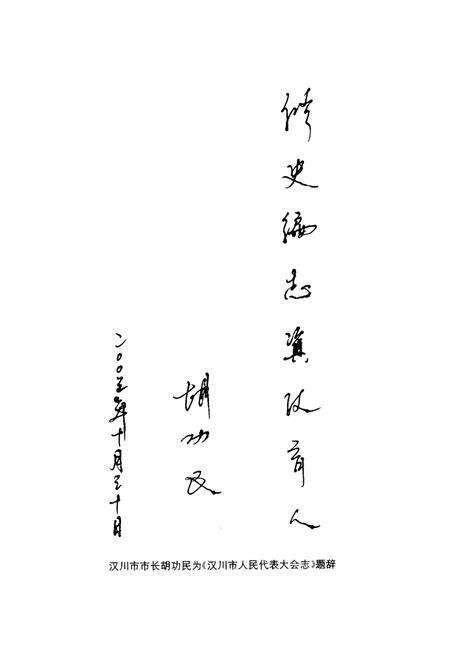 修史编志资政育人
胡功民
二〇〇五年十月三十日
汉川市市长胡功民为《汉川市人民代表大会志》题辞